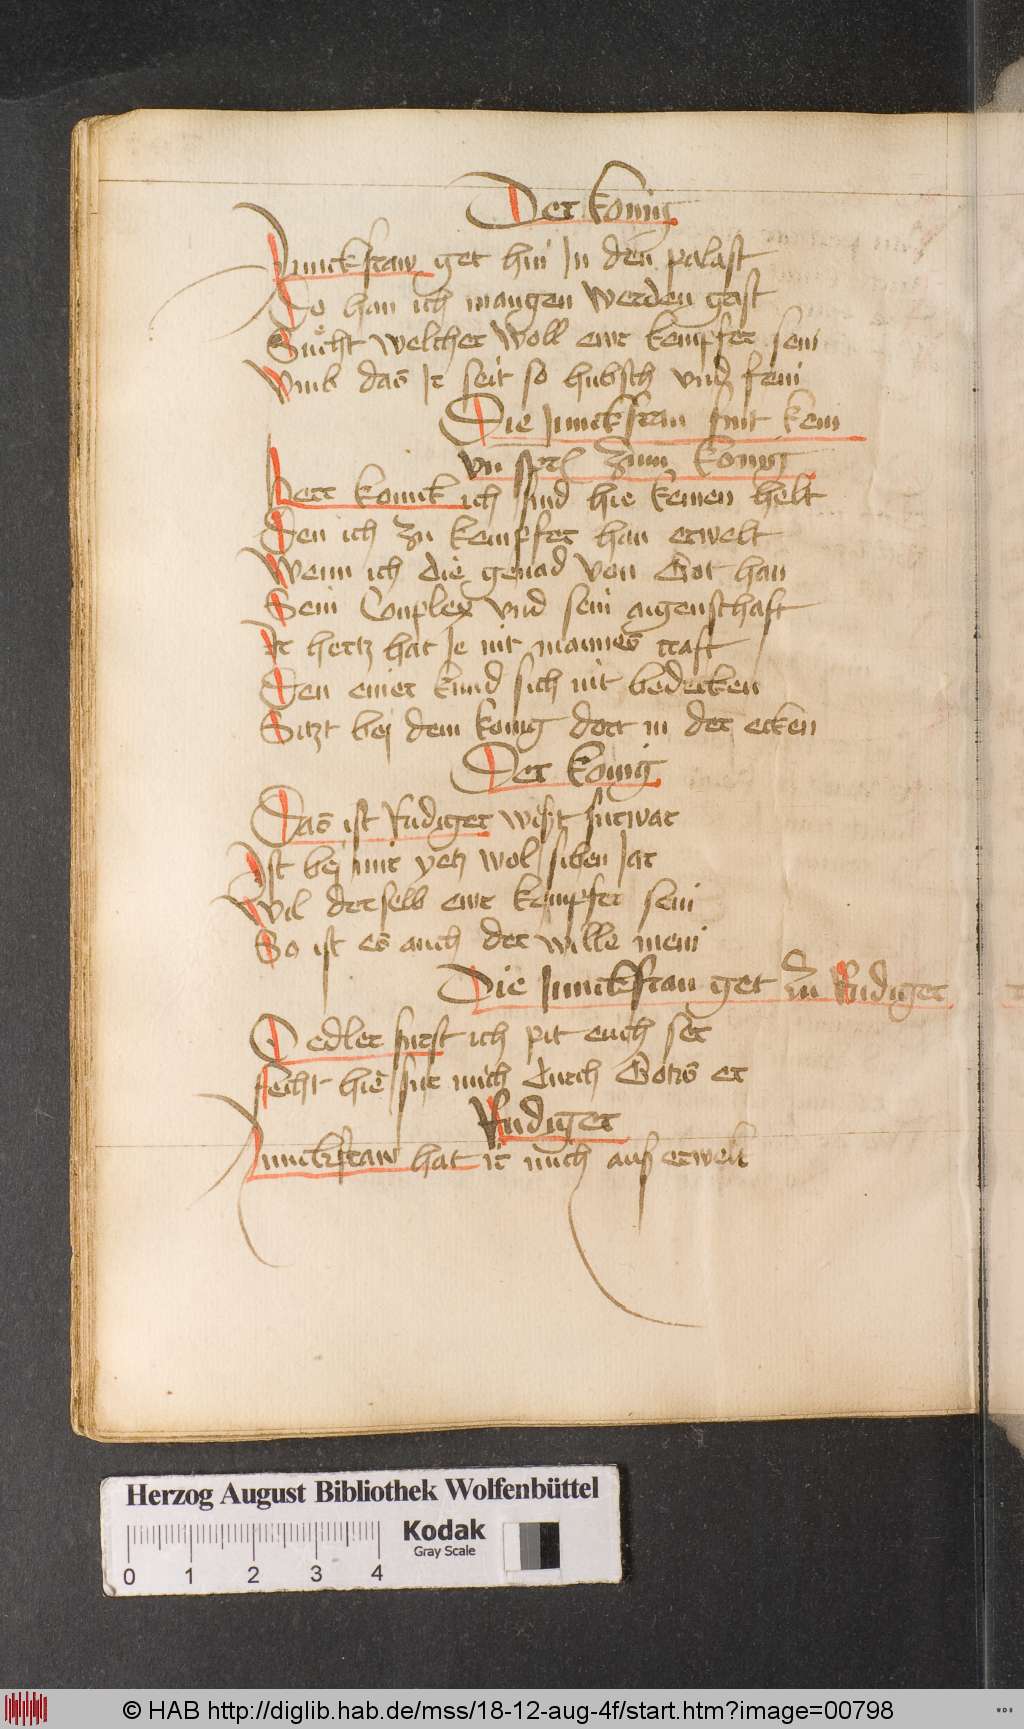 Der konig
Junckfraw get hin Jn den palast
Do han ich mangen werden gast
Sucht welcher woll ewr kempfer sein
Vmb das Jr seit so hubsch vnd fein
Die Junckfrau sint kein
vn spt zum konig
Herr konnck ich find hie keinen helt
Den ich zu kempfer han erwelt
Wenn ich die genad von Got han
Sein Conplex vnd sein aigenschaft
Jr hertz hat Je nit mannes craft
Den einer kund sich nit bedecken
Sitzt bej dem konig dort in der ecken
Der konig
Das ist Rudiger wist furwar
Jst bej mir yetz wol siben Jar
Wil derselb ewr kempfer sein
So ist es auch der wille mein
Die Junckfrau get zu Rudiger
O edler furst ich pit euch ser
fecht hie fur mich durch Gotes er
Rudiger
Junckfraw hat ir mich auß erwelt
Herzog August Bibliothek Wolfenbüttel
Kodak
Gray Scale
0 1 2 3 4
© HAB http://diglib.hab.de/mss/18-12-aug-4f/start.htm?image=00798